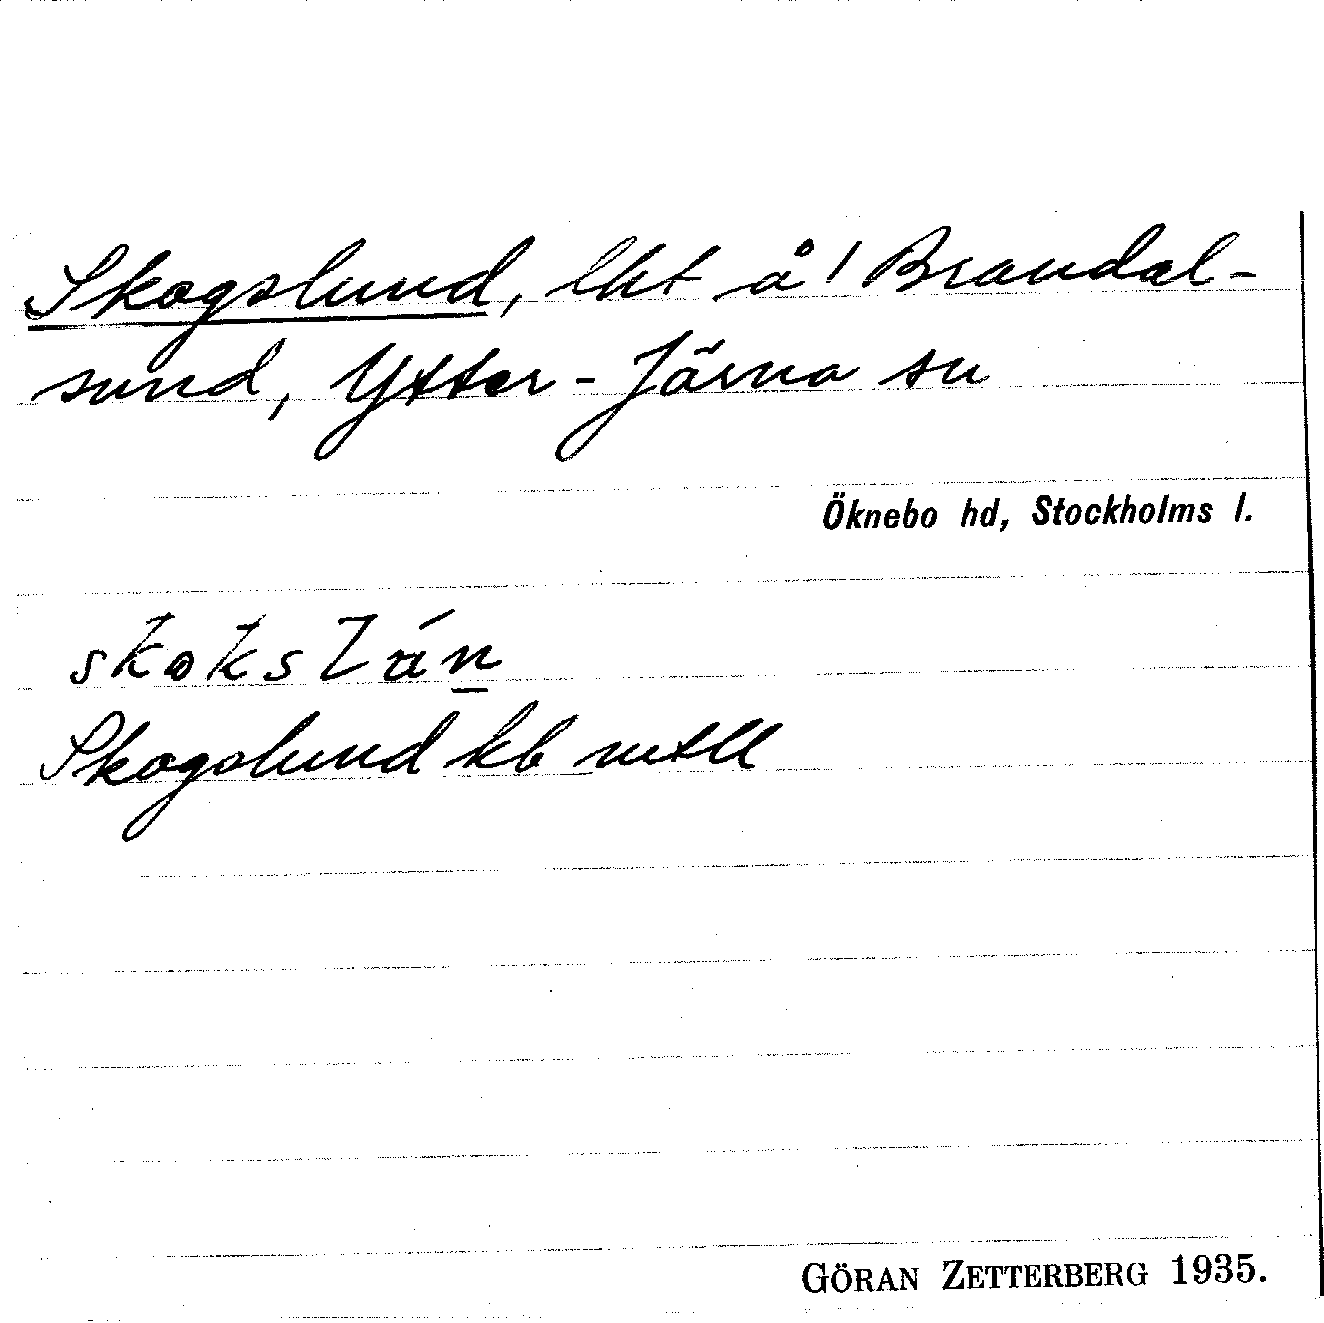 Skogslund, lht å! Brandal-
sund, Ytter-Järna sn
Öknebo hd, Stockholms l.
skokslán̲
Skogslund kb mtll
GÖRAN ZETTERBERG 1935.